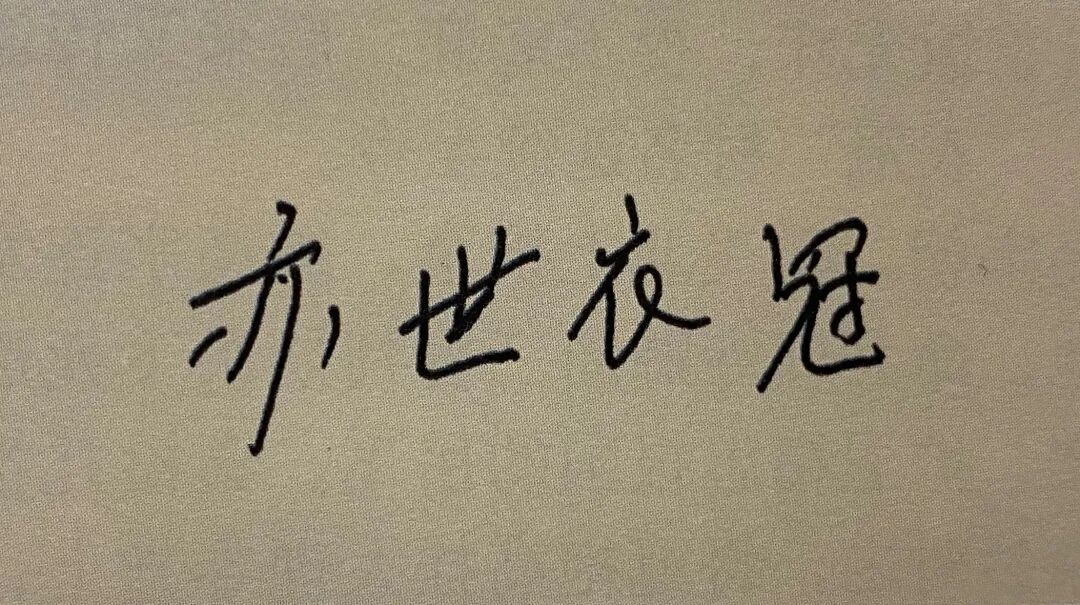 亦世衣冠